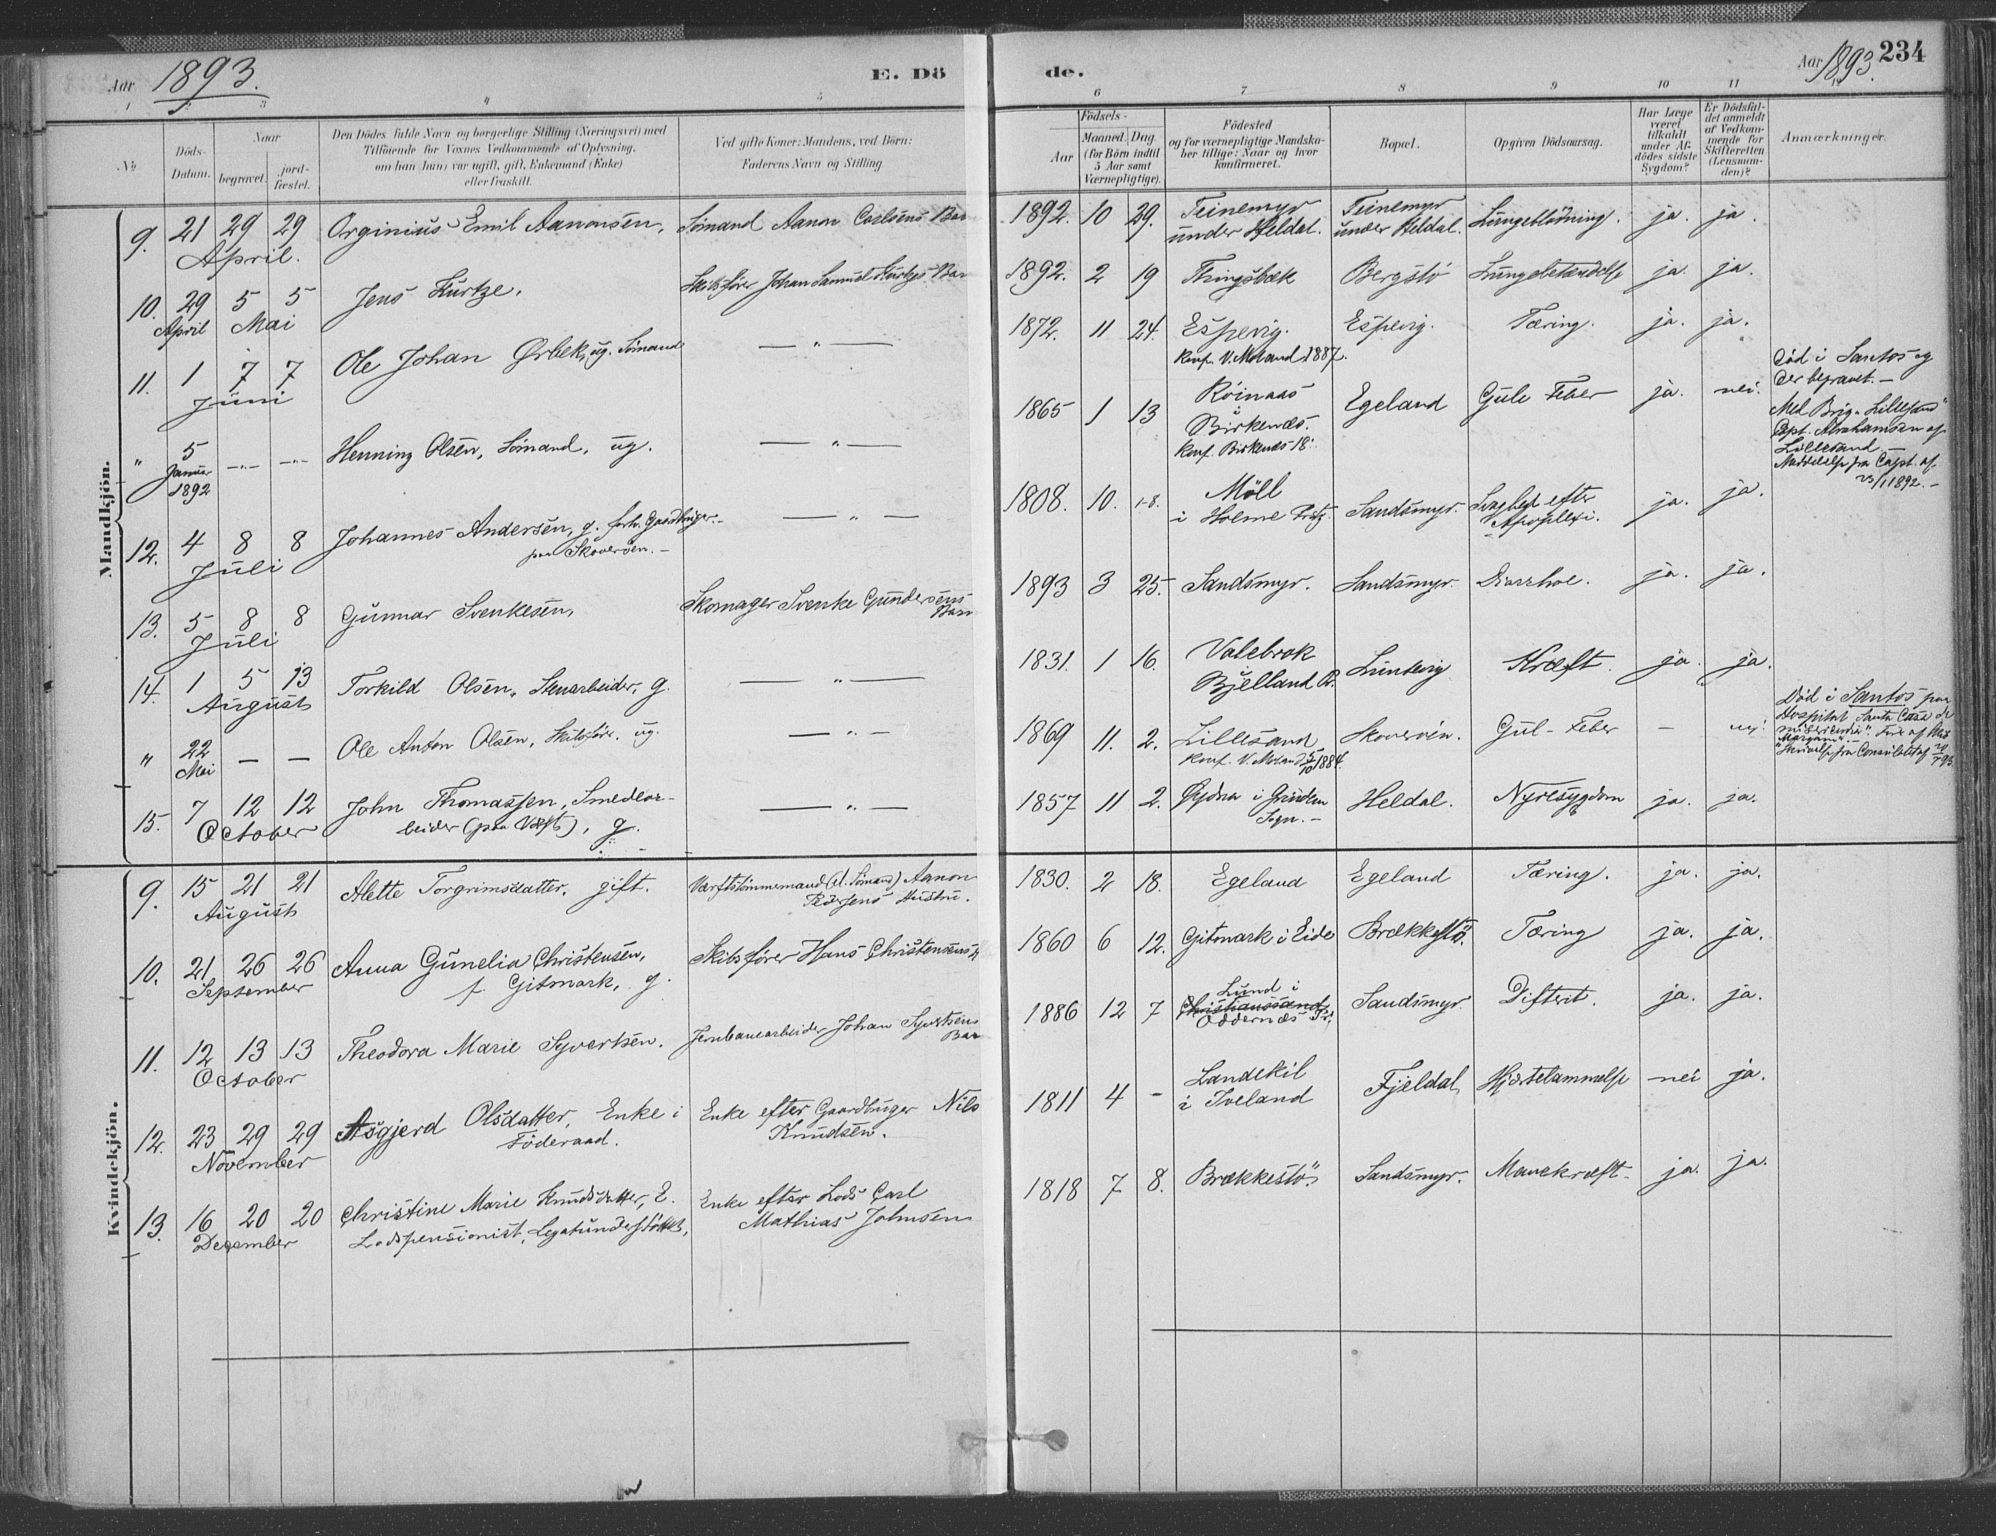 Aar 1893. E. Dö
1 2 3 4 5
№ Döds-Datum. Naar begravet. jord-fæstet. Den Dödes fulde Navn og borgerlige Stilling (Næringsvei) med Tilföiende for Voxnes Vedkommende af Oplysning, om han (hun) var ugift, gift, Enkemand (Enke) eller fraskilt. Ved gifte Koner: Mandens, ved Börn: Faderens Navn og Stilling.
Mandkjön.
9. 21 29 29 Orginius Emil Aanonsen, Sömand Aanon Carlsens Bar
April.
10. 29 5 5 Jens Kurtze, Skibsförer Johan Samuel Kurtzes Bar
April Mai
11. 1 7 7 Ole Johan Ørbek, ug. Sömand — " —
Juni
" 5 —"— —"— Henning Olsen, Sömand, ug. — " —
Januar
1892
12. 4 8 8 Johannes Andersen, g. forh. Gaardbruger — " —
Juli paa Skoveröen. —
13. 5 8 8 Gunnar Svenkesen, Skomager Svenke Gundersens
Juli Barn
14. 1 5 13 Torkild Olsen, Stenarbeider, g. — " —
August
" 22 — — Ole Anton Olsen, Skibsförer, ug. — " —
Mai
15. 7 12 12 John Thomassen, Smedear- — " —
October beider (paa Værft), g.
Kvindekjön.
9. 15 21 21 Alette Torgrimsdatter, gift. Værftstömmermand (d. Sömand) Aanon
August Pedersens Hustru.
10. 21 26 26 Anna Gunelia Christensen, Skibsförer Hans Christensens
September f. Gitmark, g.
11. 12 13 13 Theodora Marie Syvertsen. Jernbanearbeider Johan Syvertsens
October Bar
12. 23 29 29 Asgjerd Olsdatter, Enke i Enke efter Gaardbruger Nils
November Föderaad. Knudsen.
13. 16 20 20 Christine Marie Knudsdatter, E. Enke efter Lods Carl
Dezember Lodspensionist, Legatunderstöttet, Mathias Johnsen
de. Aar 1893. 234
6 7 8 9 10 11 12
Födsels- Aar Maaned. Dag. (for Börn indtil 5 Aar samt Værnepligtige). Födested og for værnepligtige Mandska-ber tillige: Naar og hvor konfirmeret. Bopæl. Opgiven Dödsaarsag. Har Læge været tilkaldt under Af-dödes sidste Sygdom? Er Dödsfal-det anmeldt af Vedkom-mende for Skifteretten (Lensman-den)? Anmærkninger.
1892. 10 29. Teinemyr Teinemyr Lungeblödning. ja. ja.
under Heldal. under Heldal.
1892. 2 19 Thingsbæk Bergstö Lungebetændelse ja. ja.
1872. 11 24. Espevig. Espevig. Tæring. ja. ja.
Konf. V. Moland 1887.
1865 1 13 Röinaas Egeland Gule Feber ja. nei. Död i Santos og
i der begravet. —
Birkenæs. Med Brig "Lillesand"
Konf. Birkenæs 18 Capt. Abrahamsen af
Lillesand —
Meddelelse fra Capt. af
23/1 1892. —
1808. 10. 18. Möll Sandsmyr. Svaghed efter ja. ja.
i Holme Prstg. Apoplexi.
1893 3 25. Sandsmyr. Sandsmyr. Diarrhoe. ja. ja.
1831. 1 16. Valebrok Lüntevig Kræft. ja. ja.
Bjelland P.
1869 11. 2. Lillesand Skoveröen. Gul-Feber — nej. Död i Santos paa
Konf. V. Moland 5/10 1884. Hospital Santa Casa de
misericordia".
fra Consulatet af
1857 11 2. Øydna i Grindem Heldal. Nyresygdom ja. ja.
Sogn. —
1830. 2 18. Egeland Egeland Tæring. ja. ja.
1860 6 12. Gitmark i Eide Brækkestö. Tæring ja. ja.
1886 12 7 Lund i Sandsmyr. Difterit. ja. ja.
Christianssand
Oddernæs Pr.
1811 4 — Landekil Fjeldal Hjertelammelse nei ja.
i Iveland
1818 7 8. Brækkestö. Sandsmyr. Mavekræft. ja. ja.